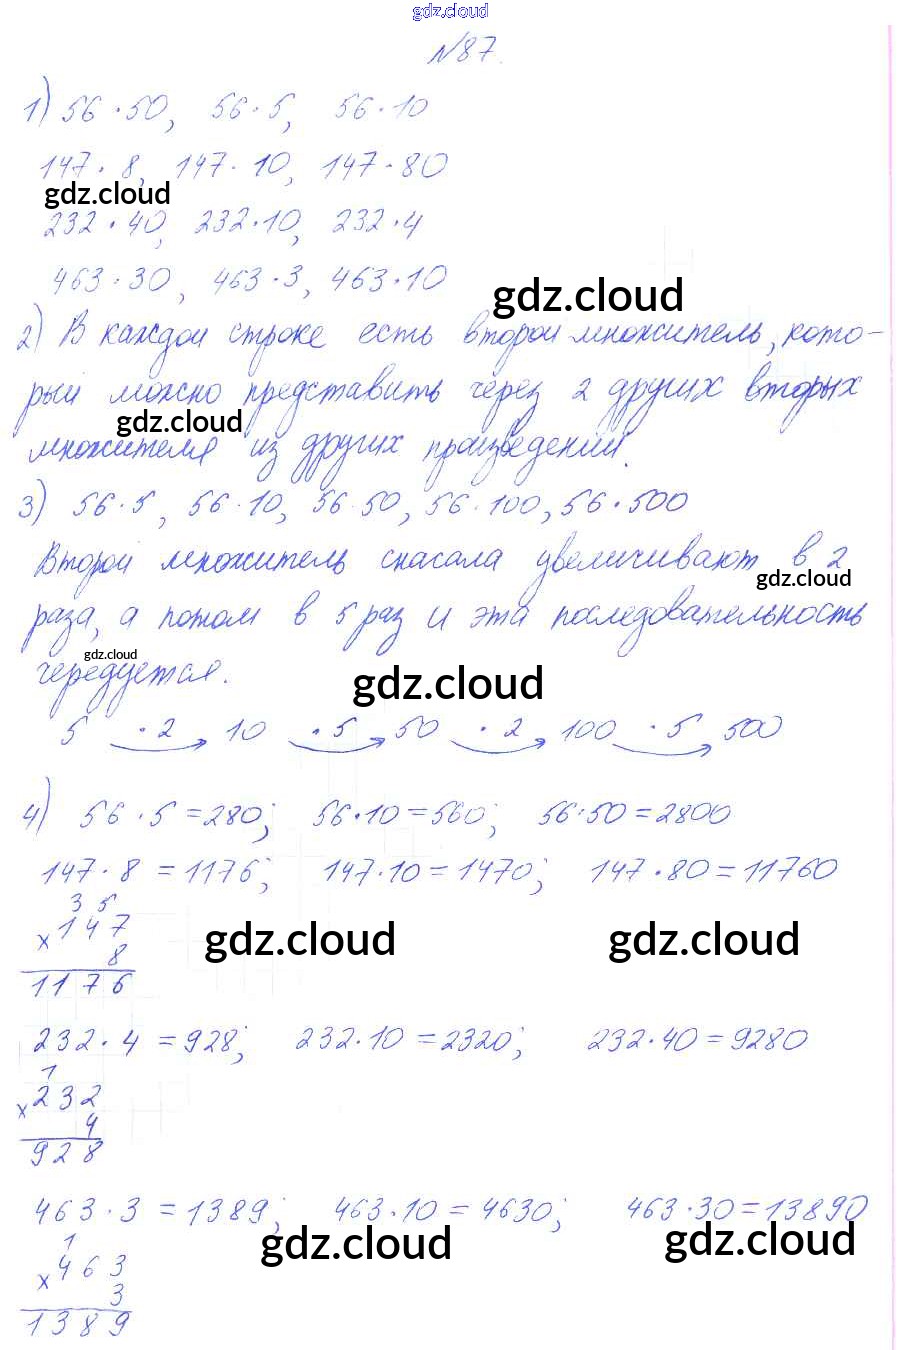 gdz.cloud
№87.
1) 56·50, 56·5, 56·10
147·8, 147·10, 147·80
gdz.cloud
232·40, 232·10, 232·4
463·30, 463·3, 463·10
gdz.cloud
2) В каждой строке есть второй множитель, кото-
рый можно представить через 2 других вторых
gdz.cloud
множителя из других произведений.
3) 56·5, 56·10, 56·50, 56·100, 56·500
Второй множитель сначала увеличивают в 2
gdz.cloud
раза, а потом в 5 раз и эта последовательность
gdz.cloud
чередуется.
gdz.cloud
5 ·2 10 ·5 50 ·2 100 ·5 500
4) 56·5=280; 56·10=560; 56·50=2800
147·8=1176; 147·10=1470; 147·80=11760
3 5
×147
8
gdz.cloud gdz.cloud
1176
232·4=928; 232·10=2320; 232·40=9280
1
×232
4
928
463·3=1389; 463·10=4630; 463·30=13890
gdz.cloud gdz.cloud
1
×463
3
1389